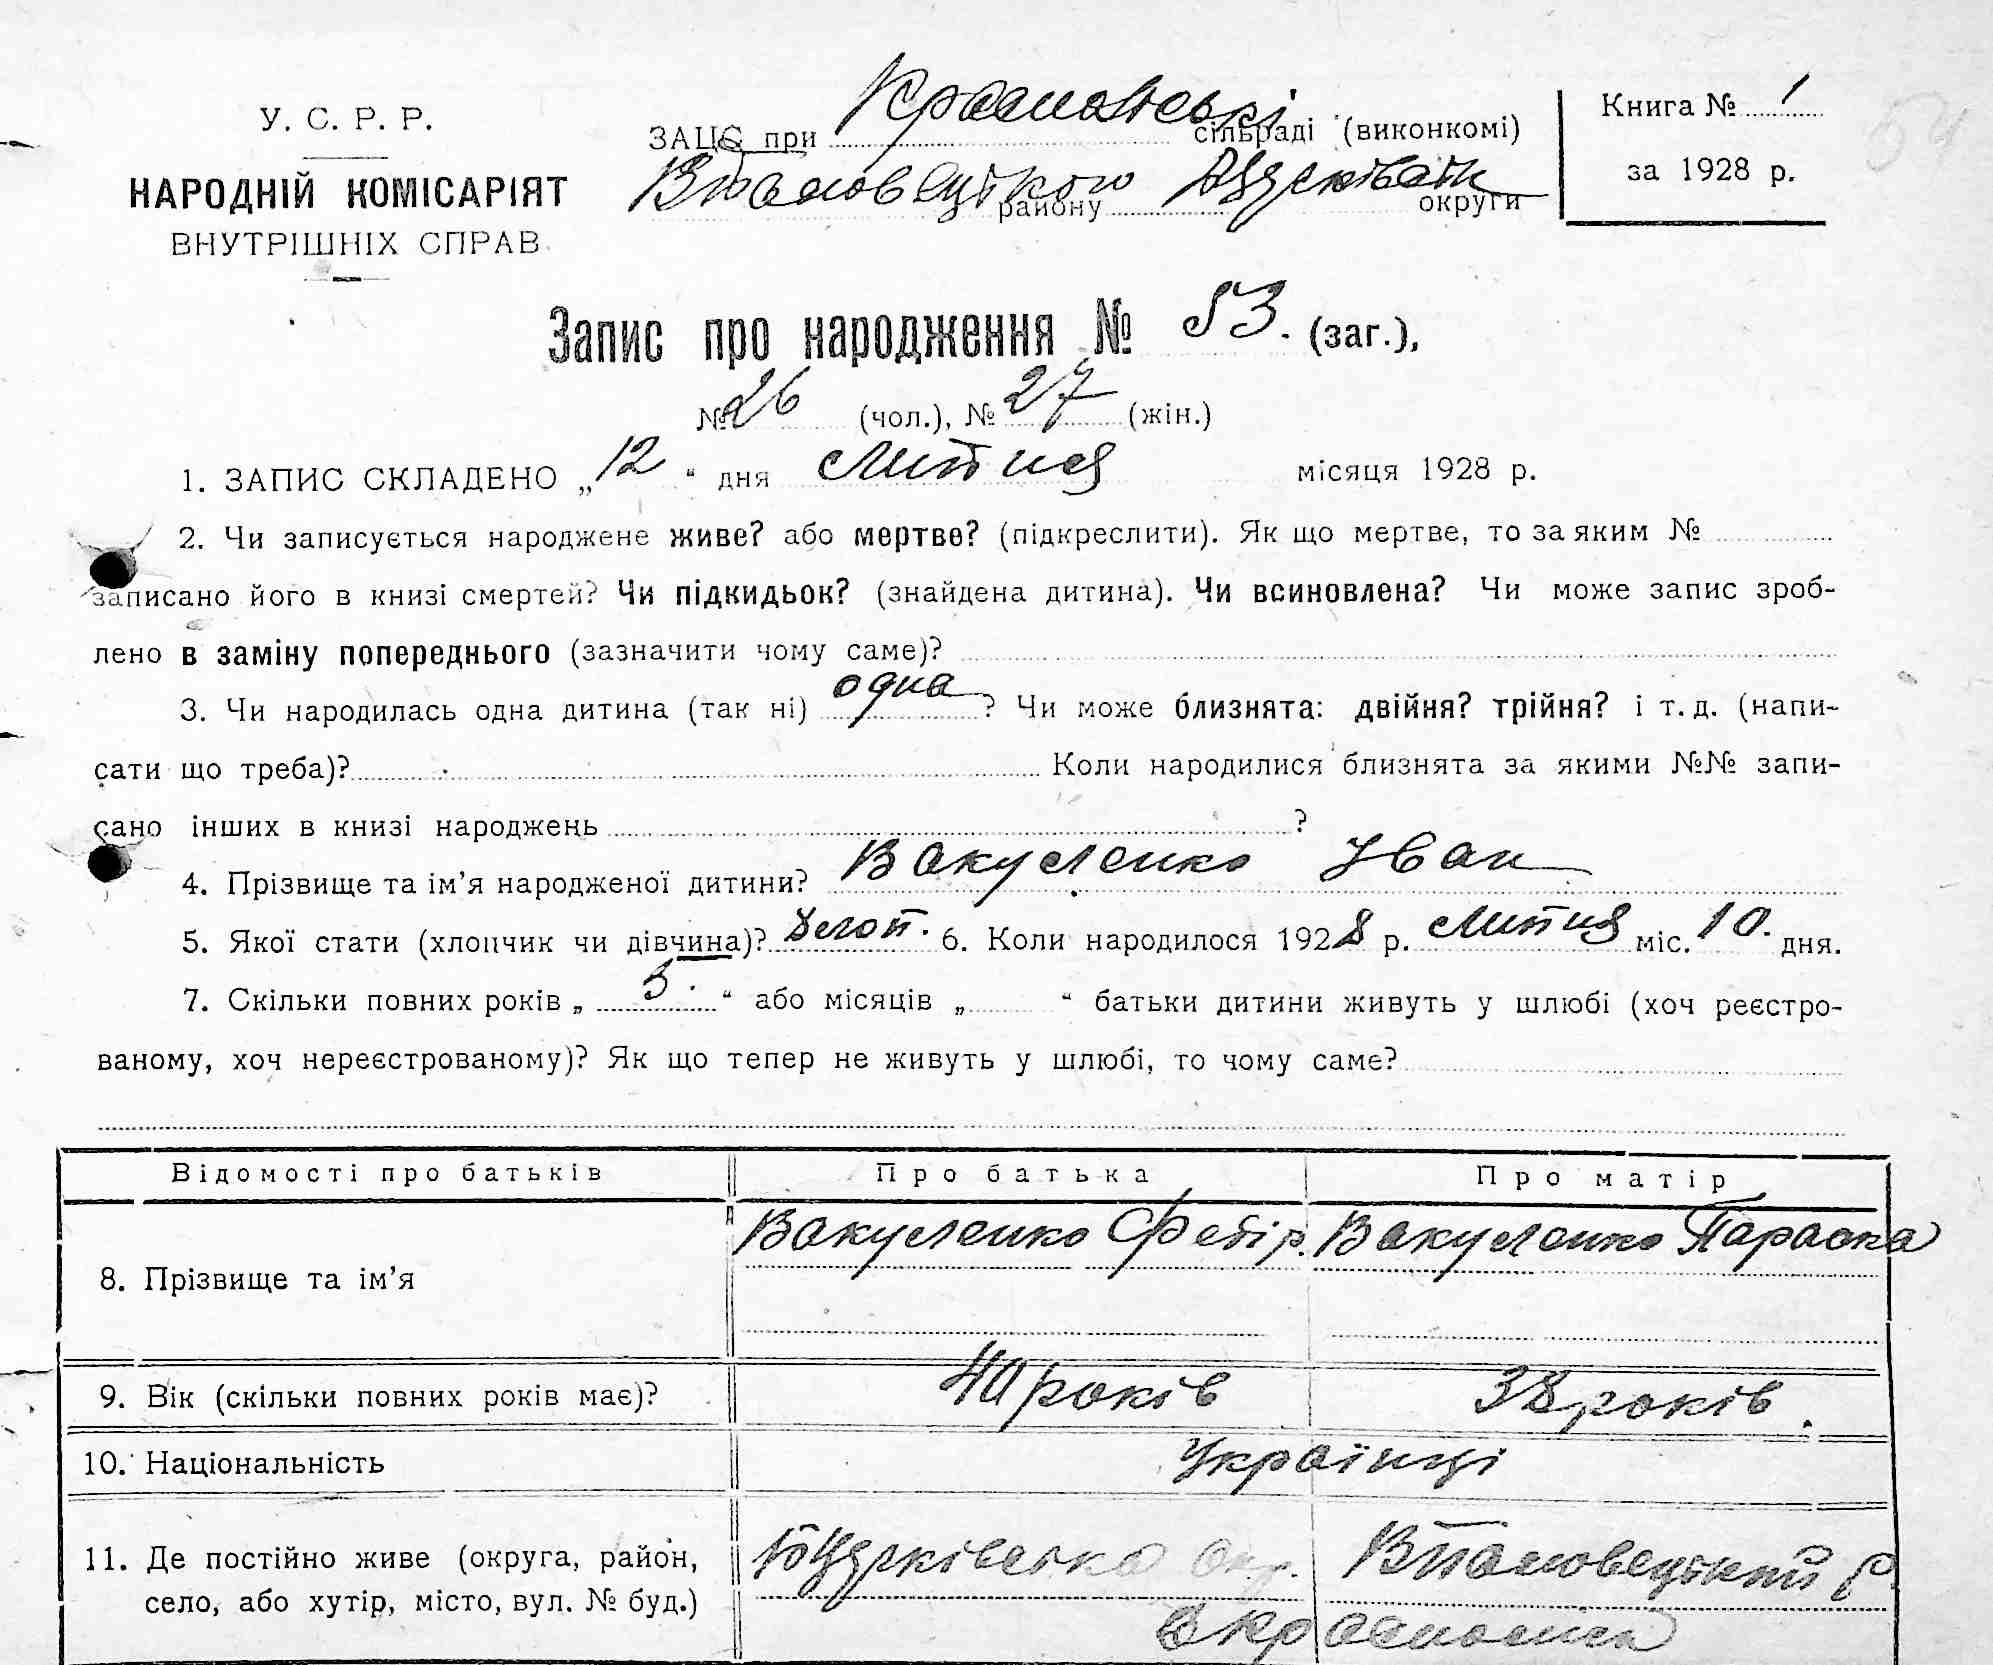 У. С. Р. Р.
НАРОДНІЙ КОМІСАРІЯТ
ВНУТРІШНІХ СПРАВ
ЗАЦС при сільраді (виконкомі)
району округи
Книга № 1
за 1928 р.
Запис про народження № 53. (заг.),
№ 26 (чол.), № 27 (жін.)
1. ЗАПИС СКЛАДЕНО „12“ дня Липня місяця 1928 р.
2. Чи записується народжене живе? або мертве? (підкреслити). Як що мертве, то за яким №
записано його в книзі смертей? Чи підкидьок? (знайдена дитина). Чи всиновлена? Чи може запис зроб-
лено в заміну попереднього (зазначити чому саме)?
3. Чи народилась одна дитина (так ні) одна ? Чи може близнята: двійня? трійня? і т. д. (напи-
сати що треба)? Коли народилися близнята за якими №№ запи-
сано інших в книзі народжень ?
4. Прізвище та ім’я народженої дитини? Вакуленко Іван
5. Якої стати (хлопчик чи дівчина)? 6. Коли народилося 1928 р. Липня міс. 10. дня.
7. Скільки повних років „ “ або місяців „ “ батьки дитини живуть у шлюбі (хоч реєстро-
ваному, хоч нереєстрованому)? Як що тепер не живуть у шлюбі, то чому саме?
Відомості про батьків Про батька Про матір
8. Прізвище та ім’я Вакуленко Федір. Вакуленко Параска
9. Вік (скільки повних років має)? 40 років 38 років.
10. Національність Українці
11. Де постійно живе (округа, район,
село, або хутір, місто, вул. № буд.)